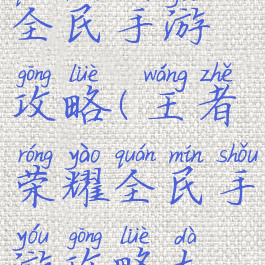 全民手游
gōng lüè wáng zhě
攻略(王者
róng yào quán mín shǒu
荣耀全民手
yóu gōng lüè dà
游攻略大